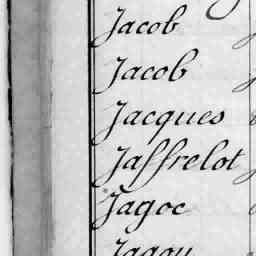 Jacob
Jacob
Jacques
Jaffrelot
Jagoc